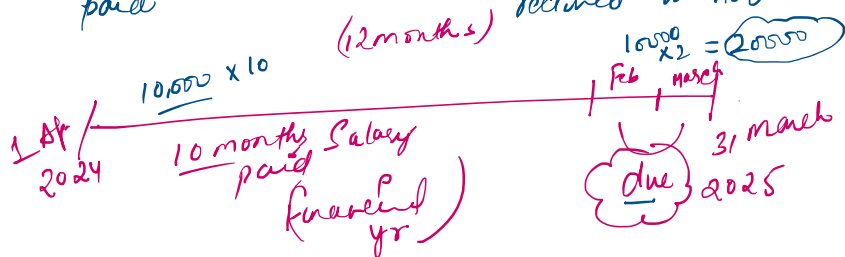 paid
(12 months)
10000
x2 = 20000
10,000 x 10
Feb March
1 Apr
2024
10 months Salary
paid
31 March
2025
due
Financial
yr